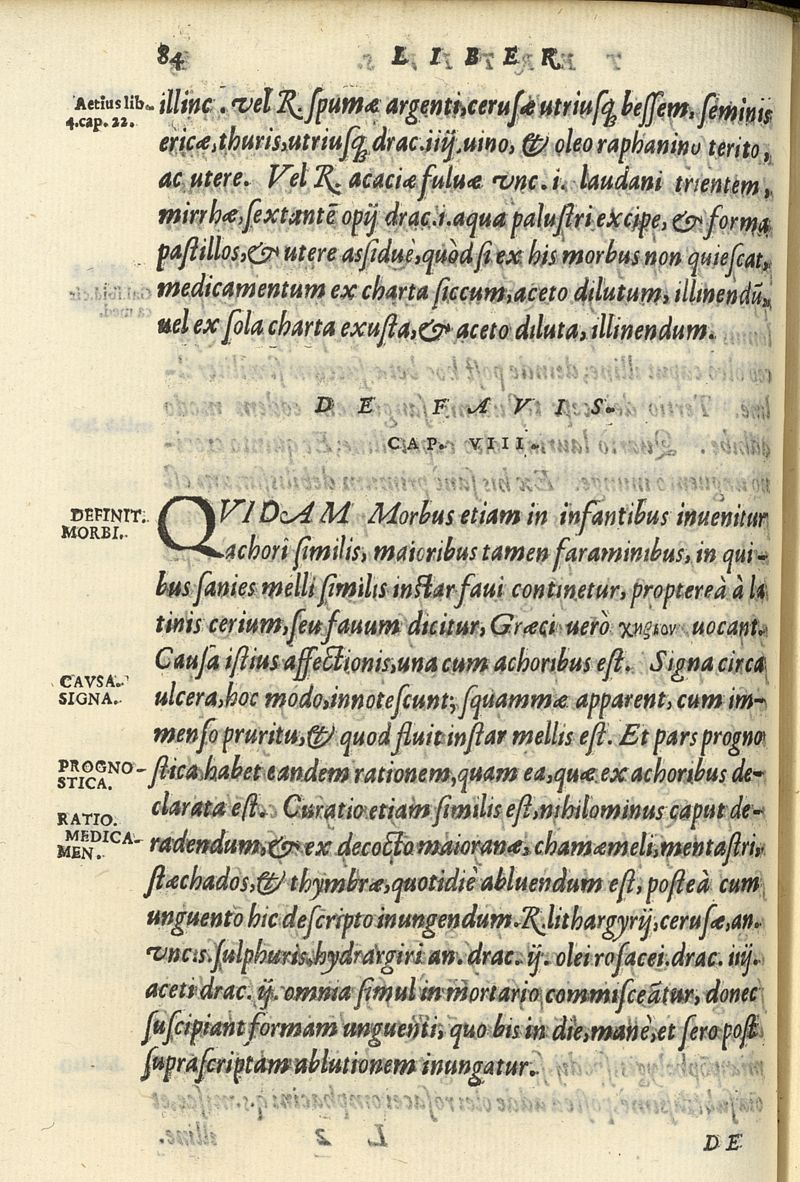 84 LIBER
Aetius lib.
4.cap. 22.
illinc. vel R. ſpumæ argenti, ceruſæ utriuſq; beſſem, ſeminis
ericæ, thuris, utriuſq; drac. iiij. uino, & oleo raphanino terito,
ac utere. Vel R. acaciæ fuluæ vnc. i. laudani trientem,
mirrhæ, ſextantē opij drac. i. aqua paluſtri excipe, & forma
paſtillos, & utere aſsiduè, quòd ſi ex his morbus non quieſcat,
medicamentum ex charta ſiccum, aceto dilutum, illinendū,
uel ex ſola charta exuſta, & aceto diluta, illinendum.
DE FAVIS.
CAP. VIII.
DEFINIT.
MORBI.
QVIDAM Morbus etiam in infantibus inuenitur
achori ſimilis, maioribus tamen faraminibus, in qui-
bus ſanies melli ſimilis inſtar faui continetur, proptereà à la
tinis cerium, ſeu fauum dicitur, Græci uerò κηρίον uocant.
CAVSA.
SIGNA.
Cauſa iſtius affectionis, una cum achoribus eſt. Signa circa
ulcera, hoc modo, innoteſcunt; ſquammæ apparent, cum im-
menſo pruritu, & quod fluit inſtar mellis eſt. Et pars progno
PROGNO-
STICA.
ſtica habet eandem rationem, quam ea, quæ ex achoribus de-
clarata eſt. Curatio etiam ſimilis eſt, nihilominus caput de-
RATIO.
MEDICA-
MEN.
radendum, & ex decocto maioranæ, chamæmeli, mentaſtri,
ſtæchados, & thymbræ, quotidiè abluendum eſt, poſteà cum
unguento hic deſcripto inungendum. R. lithargyrij, ceruſæ, an.
vnc. s. ſulphuris, hydrargiri an. drac. ij. olei roſacei. drac. iiij.
aceti drac. ij. omnia ſimul in mortario commiſceātur, donec
ſuſcipiant formam unguenti, quo bis in die, manè, et ſero poſt
ſupraſcriptam ablutionem inungatur.
DE